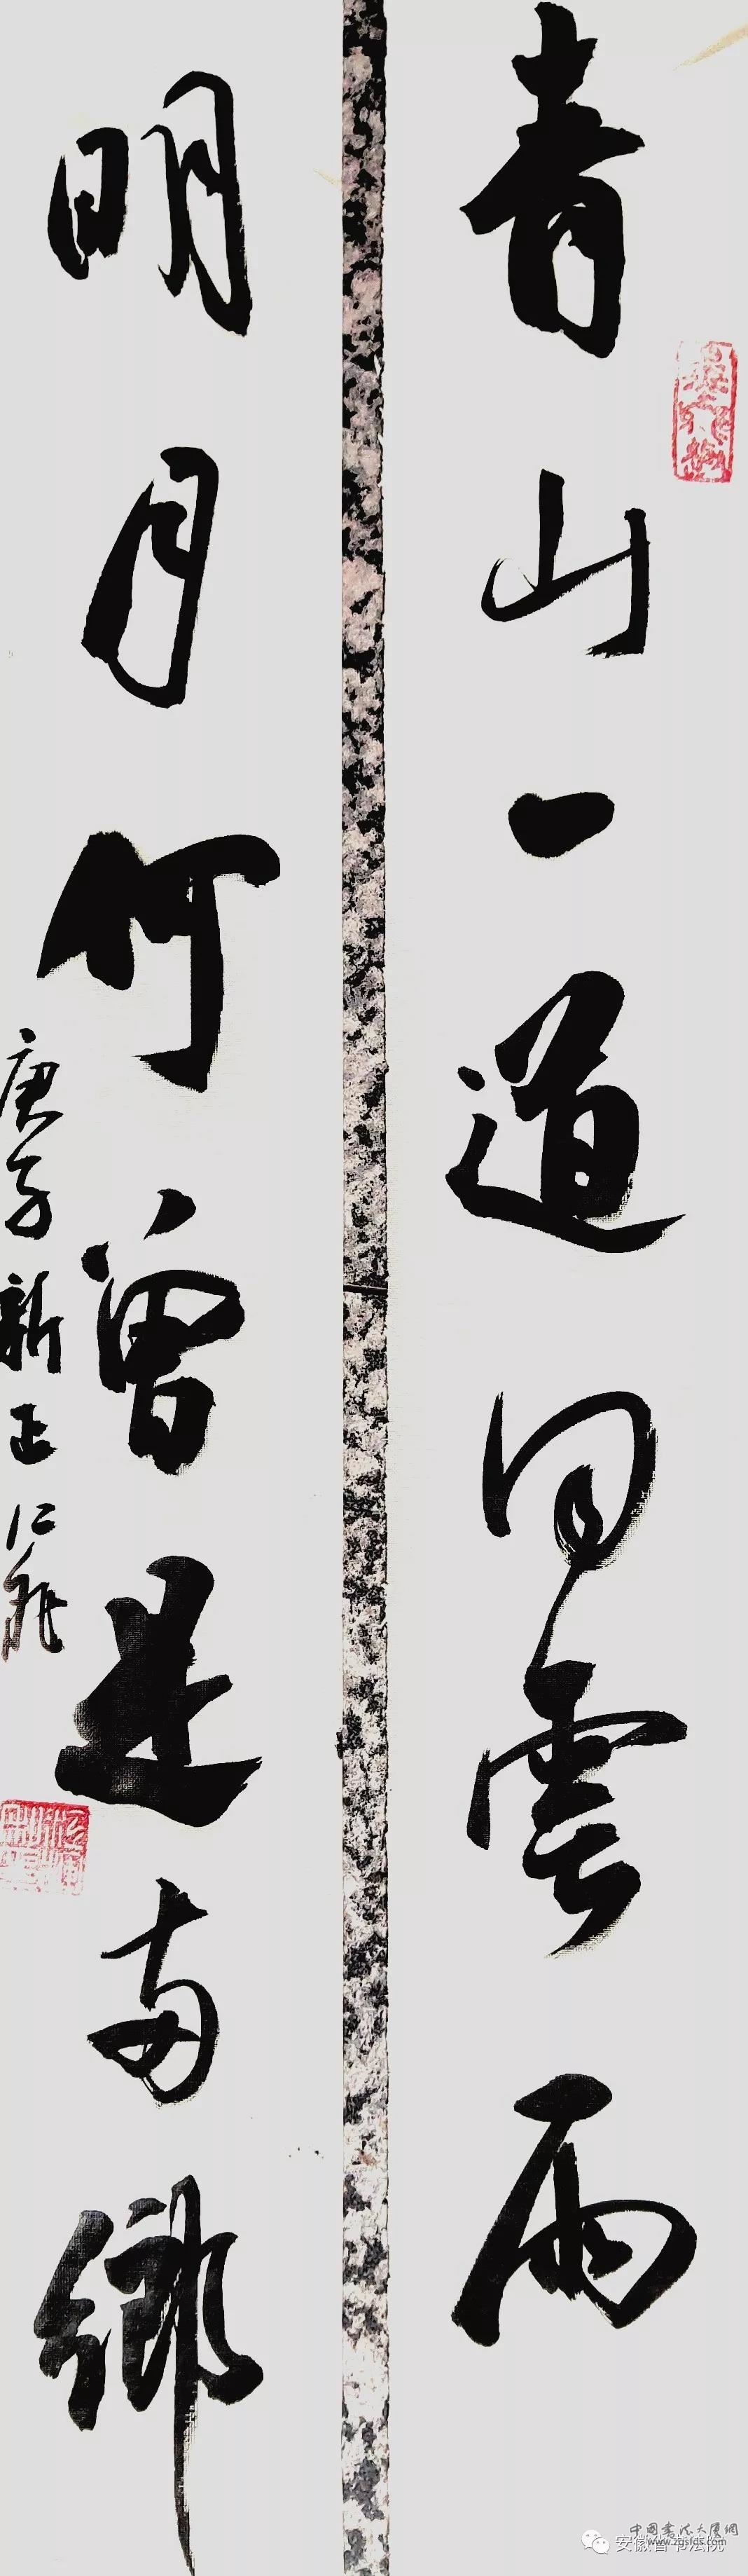 青山一道同雲雨
明月何曾是兩鄉
庚子新正仁飛
中國書法大廈網
www.zgsfds.com
安徽省书法院